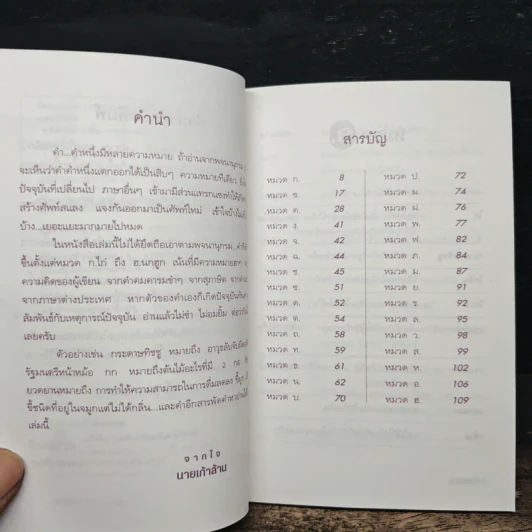 คำนำ
คำ...คำหนึ่งมีหลายความหมาย ถ้าอ่านจากพจนานุกรม
จะเห็นว่าคำคำหนึ่งแตกออกได้เป็นสิบๆ ความหมายทีเดียว
ปัจจุบันที่เปลี่ยนไป ภาษาอื่นๆ เข้ามามีส่วนแทรกแซงทำให้
สร้างศัพท์สแลง แจงกันออกมาเป็นศัพท์ใหม่ เข้าใจบ้าง
บ้าง...เยอะแยะมากมายไปหมด
ในหนังสือเล่มนี้ไม่ได้ยึดถือเอาตามพจนานุกรม
ขึ้นตั้งแต่หมวด ก.ไก่ ถึง ฮ.นกฮูก เน้นที่มีความหมาย
ความคิดของผู้เขียน จากคำคมคารมขำๆ จากสุภาษิต
จากภาษาต่างประเทศ หากตัวของคำเองก็เกิดปัจจุบัน
สัมพันธ์กับเหตุการณ์ปัจจุบัน อ่านแล้วไม่ขำ ไม่อมยิ้ม
เลยครับ
ตัวอย่างเช่น กระดาษทิชชู่ หมายถึง อาวุธลับ
รัฐมนตรีหน้าหม้อ กก หมายถึงต้นไม้อะไรที่มี 2 กอ
ยวดยานหมายถึง การทำให้ความสามารถในการดื่มลดลง
ขี้ชนิดที่อยู่ในจมูกแต่ไม่ได้กลิ่น...และคำอีกสารพัด
เล่มนี้
จากใจ
นายเก้าล้าน
สารบัญ
หมวด ก. 8 หมวด ป. 72
หมวด ข. 17 หมวด ผ. 74
หมวด ค. 28 หมวด ฝ. 76
หมวด ง. 41 หมวด พ. 77
หมวด จ. 42 หมวด ฟ. 82
หมวด ฉ. 44 หมวด ภ. 84
หมวด ช. 45 หมวด ม. 87
หมวด ซ. 51 หมวด ย. 91
หมวด ด. 52 หมวด ร. 92
หมวด ต. 54 หมวด ล. 95
หมวด ถ. 58 หมวด ว. 98
หมวด ท. 59 หมวด ส. 99
หมวด ธ. 61 หมวด ห. 102
หมวด น. 62 หมวด อ. 106
หมวด บ. 70 หมวด ฮ. 109